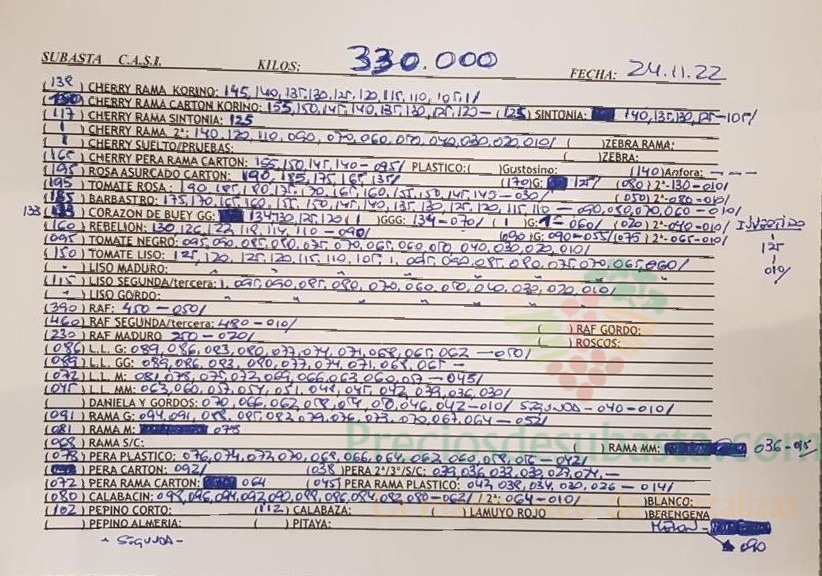 SUBASTA C.A.S.I. KILOS: 330.000 FECHA: 24.11.22
(138) CHERRY RAMA KORINO: 145,140,135,130,125,120,115,110,105,1/
( ) CHERRY RAMA CARTON KORINO: 155,150,145,140,135,130,125,120- (125) SINTONIA: 140,135,130,125-105/
(117) CHERRY RAMA SINTONIA: 125
( ) CHERRY RAMA 2ª: 140,120,110,090,070,060,050,040,030,020,010/ ( )ZEBRA RAMA:
( ) CHERRY SUELTO/PRUEBAS: ( )ZEBRA:
(165) CHERRY PERA RAMA CARTON: 155,150,145,140-095/ PLASTICO:( )Gustosino: (140)Anfora: ---
(195) ROSA ASURCADO CARTON: 190,185,175,165,135/
(195) TOMATE ROSA: 190,185,180,175,170,165,160,155,150,145,140-030/ (170)G: 125/ (080) 2ª-130-010/
(185) BARBASTRO: 175,170,165,160,155,150,145,140,135,130,125,120,115,110-090,080,070,060-010/ (050) 2ª-080-010/
133 CORAZON DE BUEY GG: 134,130,125,120 ( )GGG: 134-070/ ( )G: 1-060/ (020) 2ª-040-010/
(160) REBELION: 130,126,122,118,114,110-090/ (090)G: 090-055/(075) 2ª-065-010/
(095) TOMATE NEGRO: 095,090,085,080,075,070,065,060,050,040,030,020,010/
(150) TOMATE LISO: 125,120,125,120,115,110,105,1,095,090,085,080,075,070,065,060/
125
010/
( ) LISO MADURO:
(115) LISO SEGUNDA/tercera: 1,095,090,085,080,070,060,050,040,030,020,010/
( ) LISO GORDO:
(390) RAF: 450-050/
(460) RAF SEGUNDA/tercera: 480-010/ ( ) RAF GORDO:
(230) RAF MADURO 250-020/ ( ) ROSCOS:
(086) L.L. G: 089,086,083,080,077,074,071,068,065,062-050/
(089) L.L. GG: 089,086,083,080,077,074,071,068,065-
(072) L.L. M: 081,078,075,072,069,066,063,060,057-045/
(045) L.L. MM: 063,060,057,054,051,048,045,042,039,036,030/
( ) DANIELA Y GORDOS: 070,066,062,058,054,050,046,042-010/ SEGUNDA-040-010/
(091) RAMA G: 094,091,088,085,082,079,076,073,070,067,064-052/
(081) RAMA M: 075
(068) RAMA S/C: ) RAMA MM: 036-015
(078) PERA PLASTICO: 076,074,072,070,068,066,064,062,060,058,056-042/
( ) PERA CARTON: 092/ (038) PERA 2ª/3ª/S/C: 039,036,033,030,027,024,-
(072) PERA RAMA CARTON: 064 (045) PERA RAMA PLASTICO: 042,038,034,030,026-014/
(080) CALABACIN: 098,096,094,092,090,088,086,084,082,080-062/ 2ª: 064-010/ )BLANCO:
(102) PEPINO CORTO: (112) CALABAZA: ) LAMUYO ROJO )BERENGENA
( ) PEPINO ALMERIA: ( ) PITAYA:
- SEGUNDA- 090
Preciosdesubasta.com